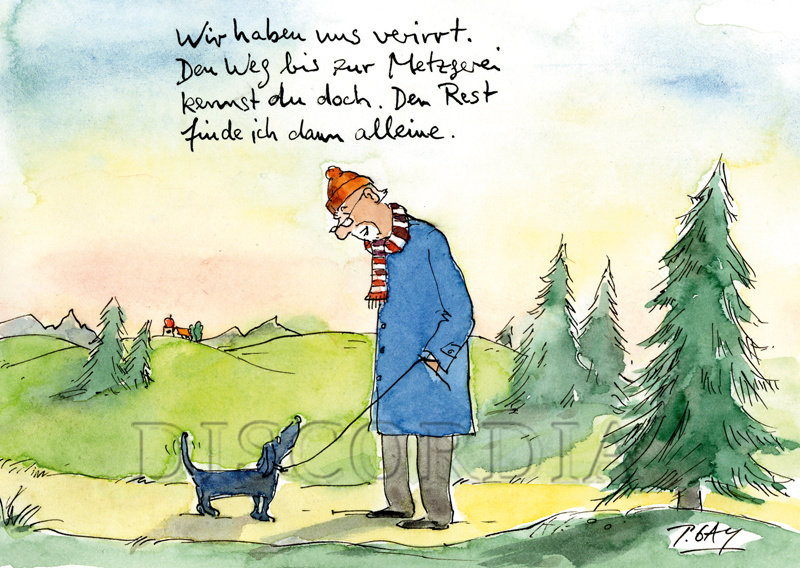 Wir haben uns verirrt.
Den Weg bis zur Metzgerei
kennst du doch. Den Rest
finde ich dann alleine.
DISCORDIA
P. GAY